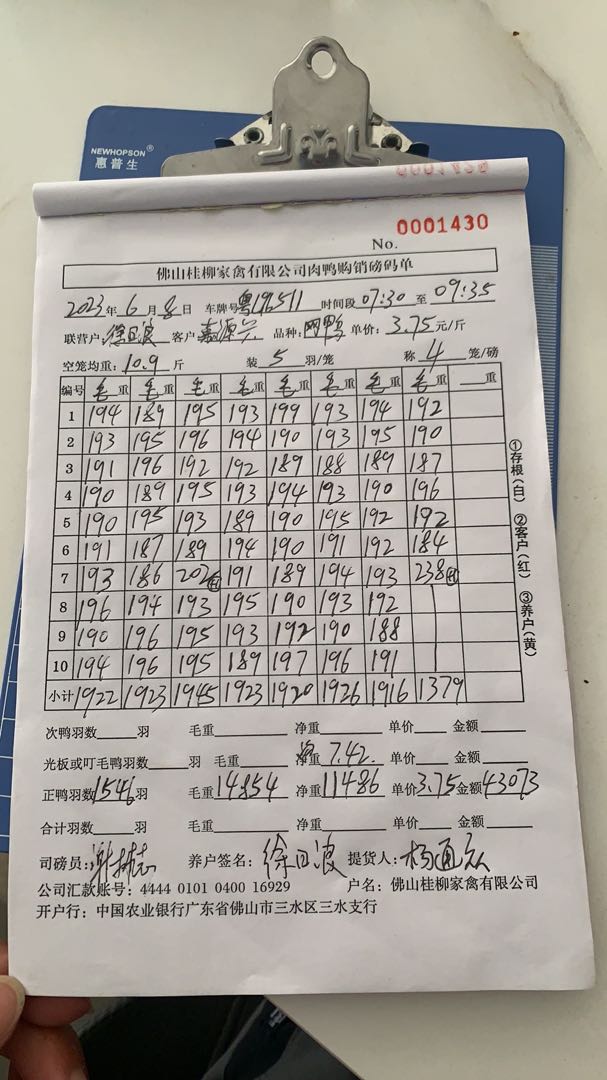 NEWHOPSON®
惠普生
0001429
0001430
No.
佛山桂柳家禽有限公司肉鸭购销磅码单
2023年 6 月 8 日 车牌号 粤 时间段 07:30 至 09:35
联营户: 徐回波 客户 嘉源兴 品种: 肉鸭 单价: 3.75 元/斤
空笼均重: 10.9 斤 装 5 羽/笼 称 4 笼/磅
编号 毛重 毛重 毛重 毛重 毛重 毛重 毛重 毛重 重
1 194 189 195 193 199 193 194 192
2 193 195 196 194 190 193 195 190
3 191 196 192 192 189 188 189 187
4 190 189 195 193 194 193 190 196
5 190 195 193 189 190 195 192 192
6 191 187 189 194 190 191 192 184
7 193 186 202 191 189 194 193 238
8 196 194 193 195 190 193 192
9 190 196 195 193 192 190 188
10 194 196 195 189 197 196 191
小计 1922 1923 1945 1923 1920 1926 1916 1379
①存根(白) ②客户(红) ③养户(黄)
次鸭羽数 羽 毛重 净重 单价 金额
光板或叮毛鸭羽数 羽 毛重 净重 7.42. 单价 金额
正鸭羽数 1546 羽 毛重 14854 净重 11486 单价 3.75 金额 43073
合计羽数 羽 毛重 净重 单价 金额
司磅员: 养户签名: 徐回波 提货人: 杨通众
公司汇款账号: 4444 0101 0400 16929 户名: 佛山桂柳家禽有限公司
开户行: 中国农业银行广东省佛山市三水区三水支行